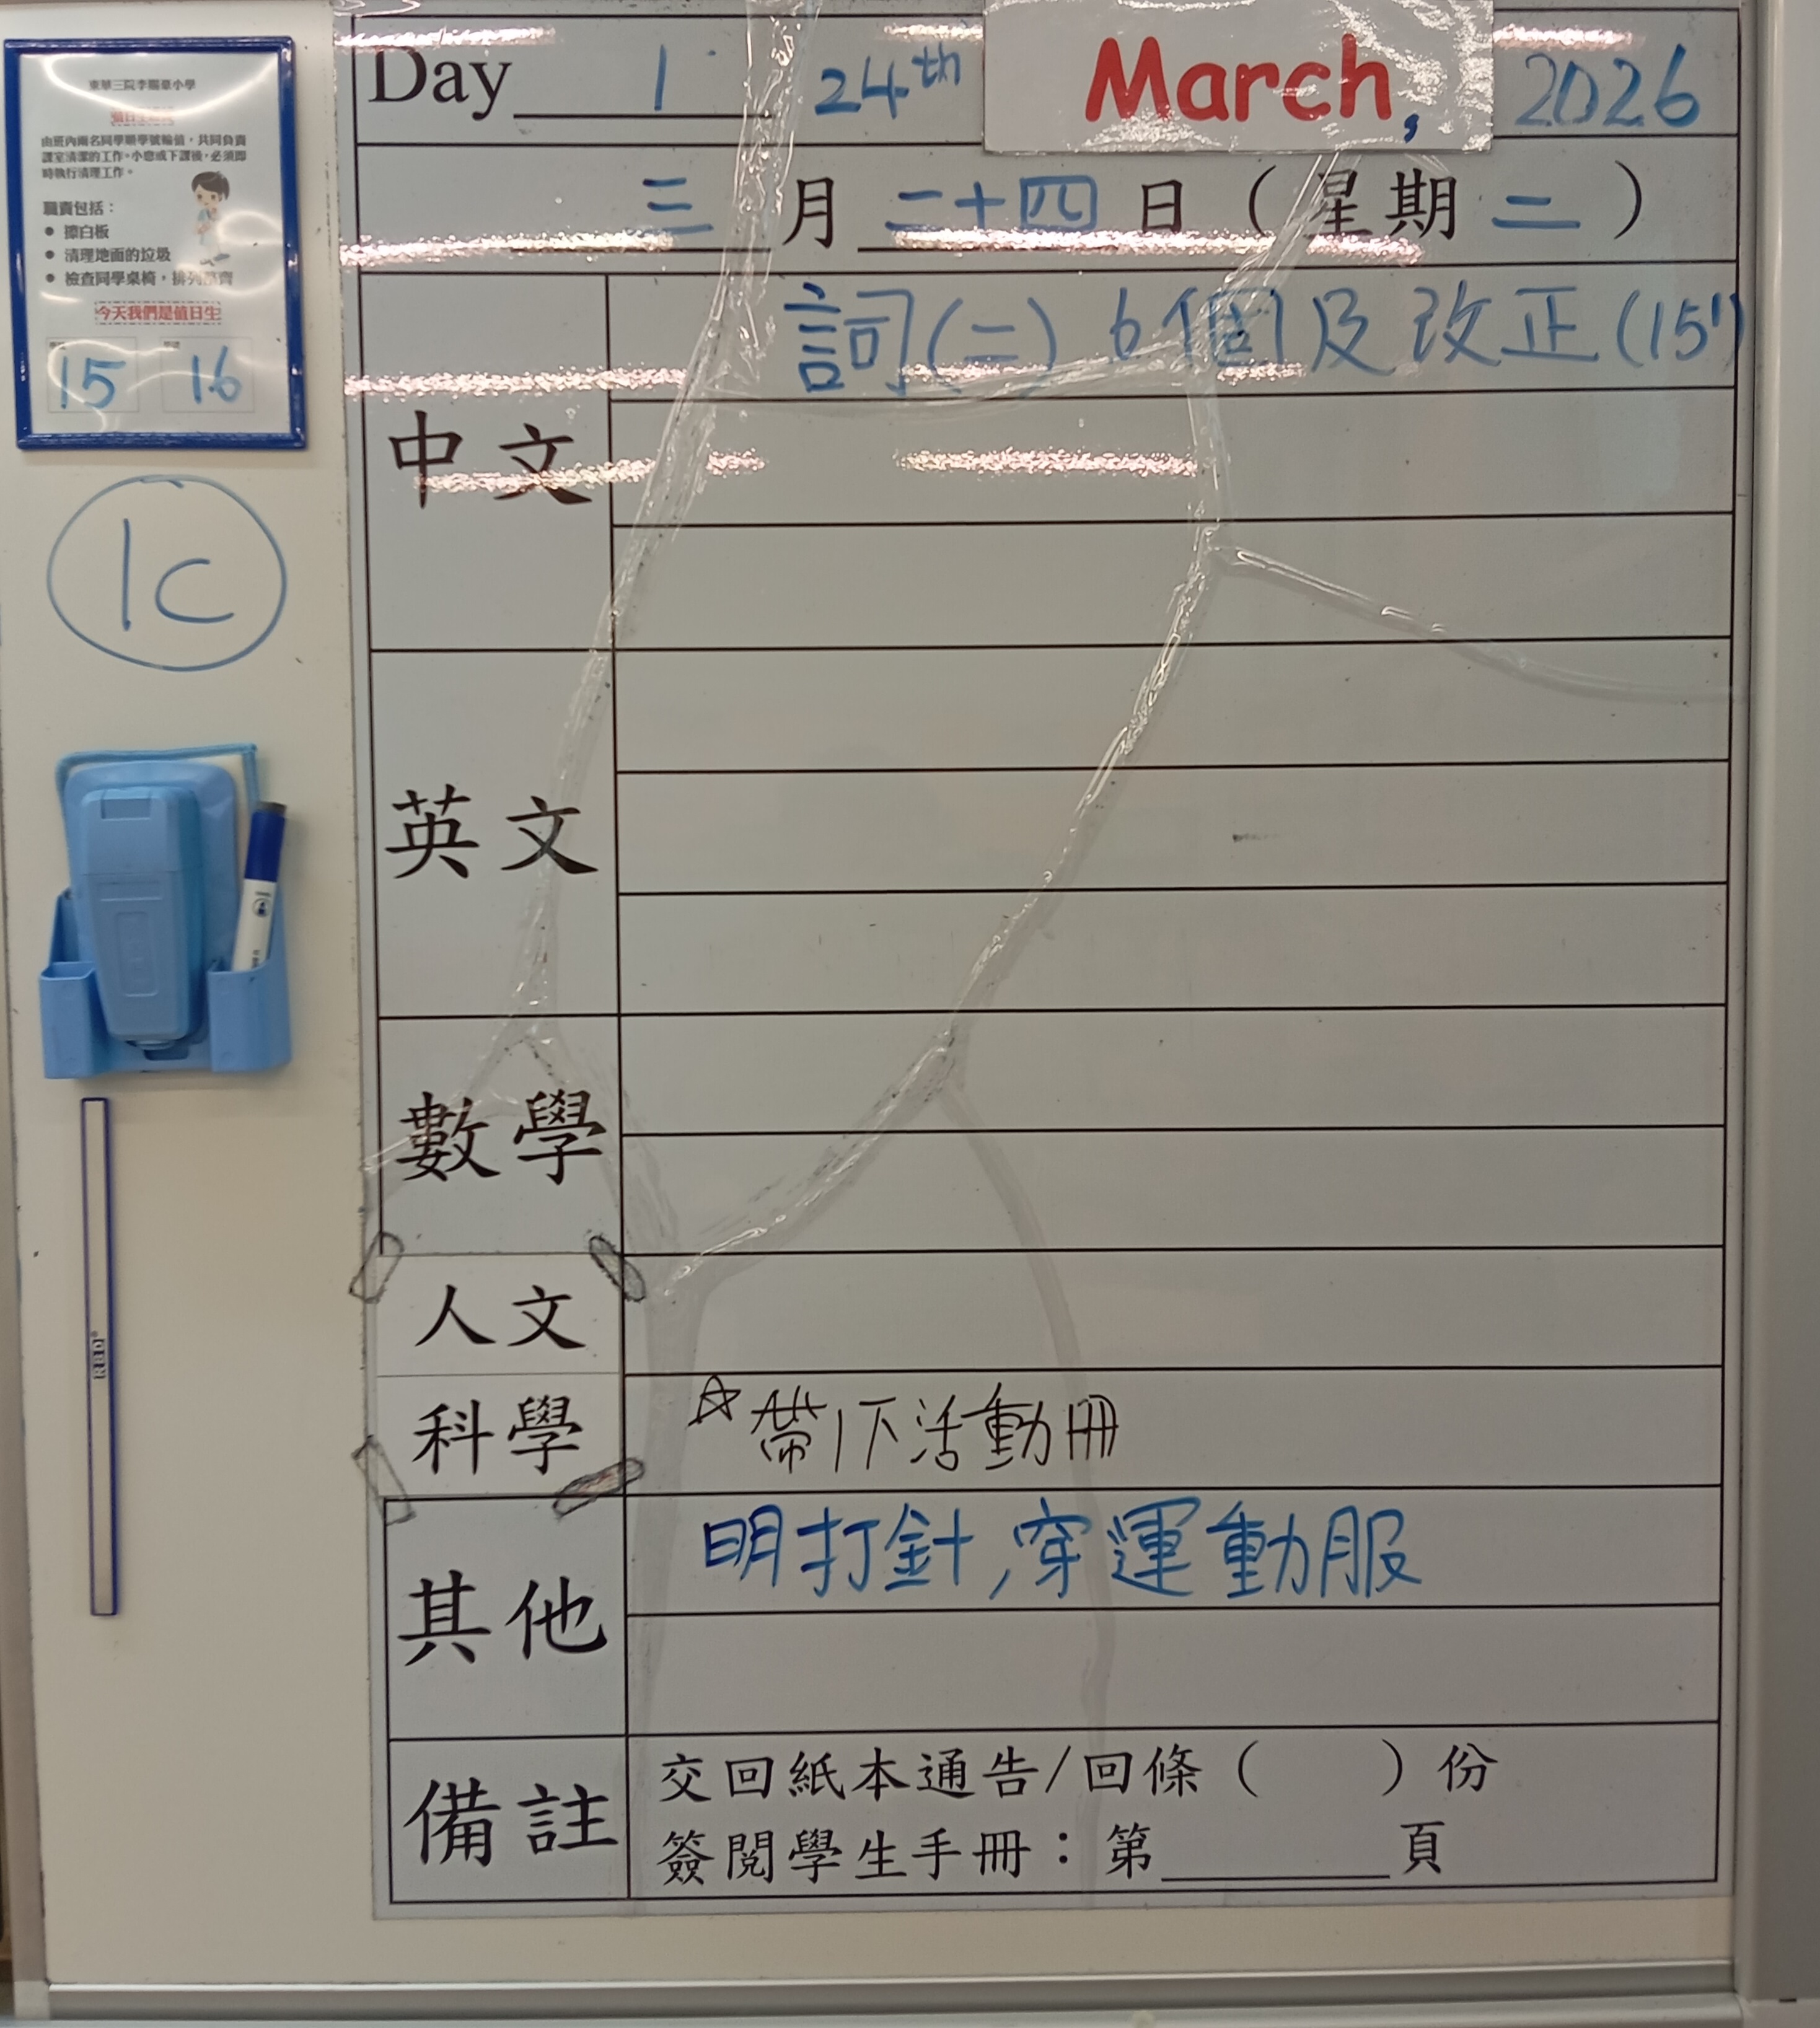 東華三院李賜豪小學
值日生職責
由班內兩名同學順學號輪值，共同負責
課室清潔的工作。小息或下課後，必須即
時執行清理工作。
職責包括：
● 擦白板
● 清理地面的垃圾
● 檢查同學桌椅，排列整齊
今天我們是值日生
15 16
1C
Day 1 24th March, 2026
三月二十四日（星期二）
中文
詞(二) 6個及改正(15')
英文
數學
人文
科學
☆帶1下活動冊
其他
明打針,穿運動服
備註
交回紙本通告/回條（ ）份
簽閱學生手冊：第______頁